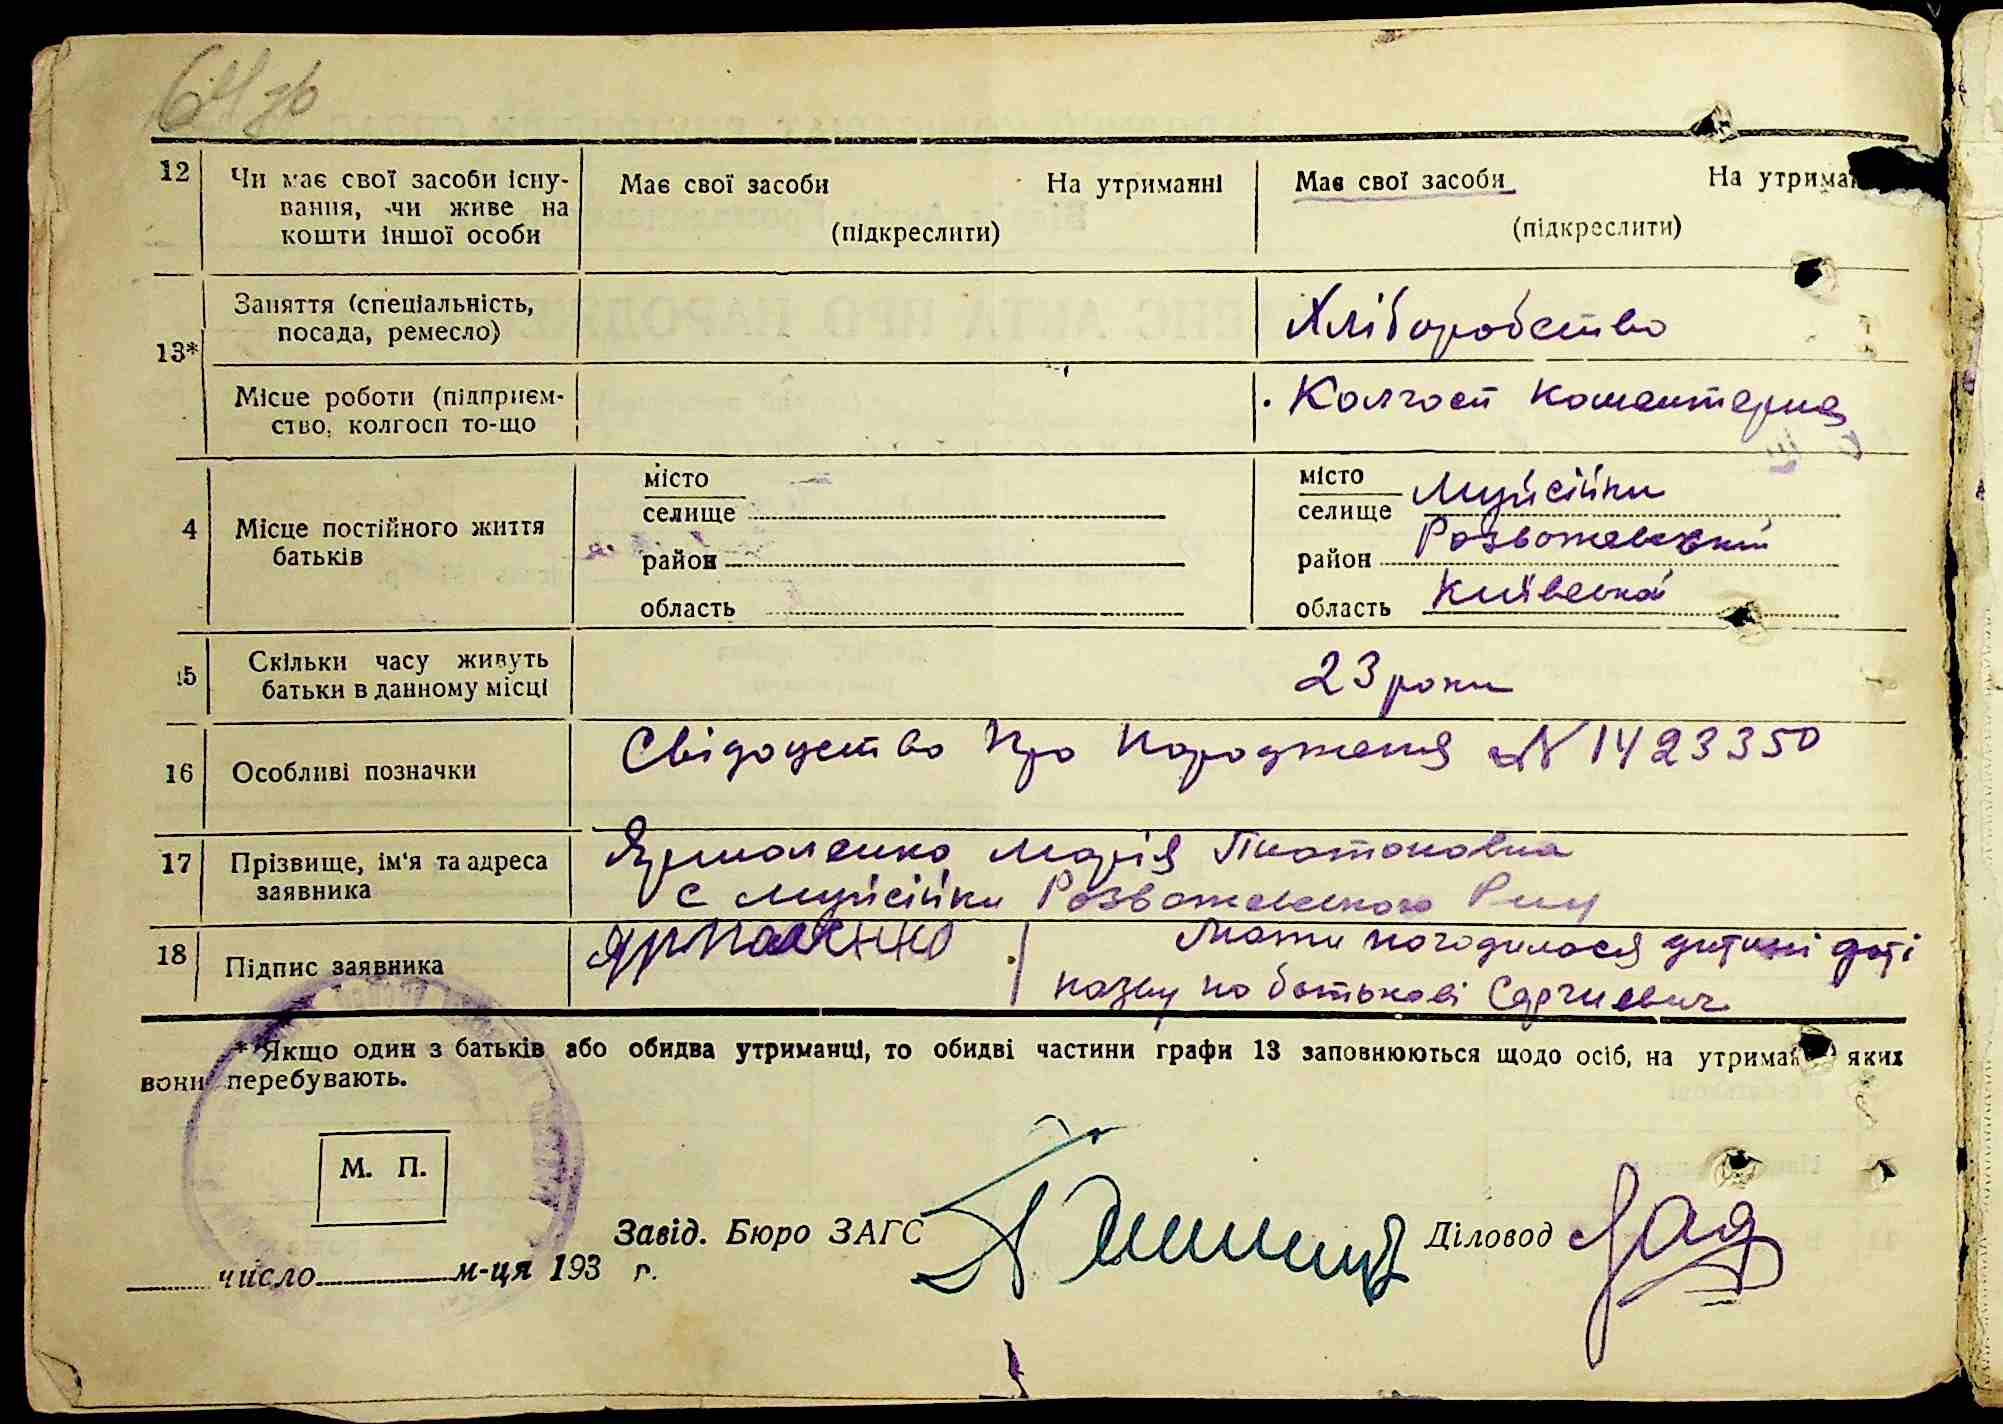 64 зв
12
Чи має свої засоби існу-
вання, чи живе на
кошти іншої особи
Має свої засоби
На утриманні
(підкреслити)
Має свої засоби
На утриман
(підкреслити)
13*
Заняття (спеціальність,
посада, ремесло)
Хліборобство
Місце роботи (підприєм-
ство, колгосп то-що
Колгосп Коментерна
4
Місце постійного життя
батьків
місто
селище
район
область
місто
селище Муйсійки
район Розважевський
область Київська
15
Скільки часу живуть
батьки в данному місці
23 роки
16
Особливі позначки
Свідоцтво Про Народження №1423350
17
Прізвище, ім'я та адреса
заявника
Ярмоленко Марія Платоновна
с Муйсійки Розважевского Р-ну
18
Підпис заявника
Ярмоленко
Мати погодилася дитині даті
назву по батькові Сергиевич
* Якщо один з батьків або обидва утриманці, то обидві частини графи 13 заповнюються щодо осіб, на утриман яких
вони перебувають.
М. П.
Завід. Бюро ЗАГС
Діловод
число м-ця 193 г.